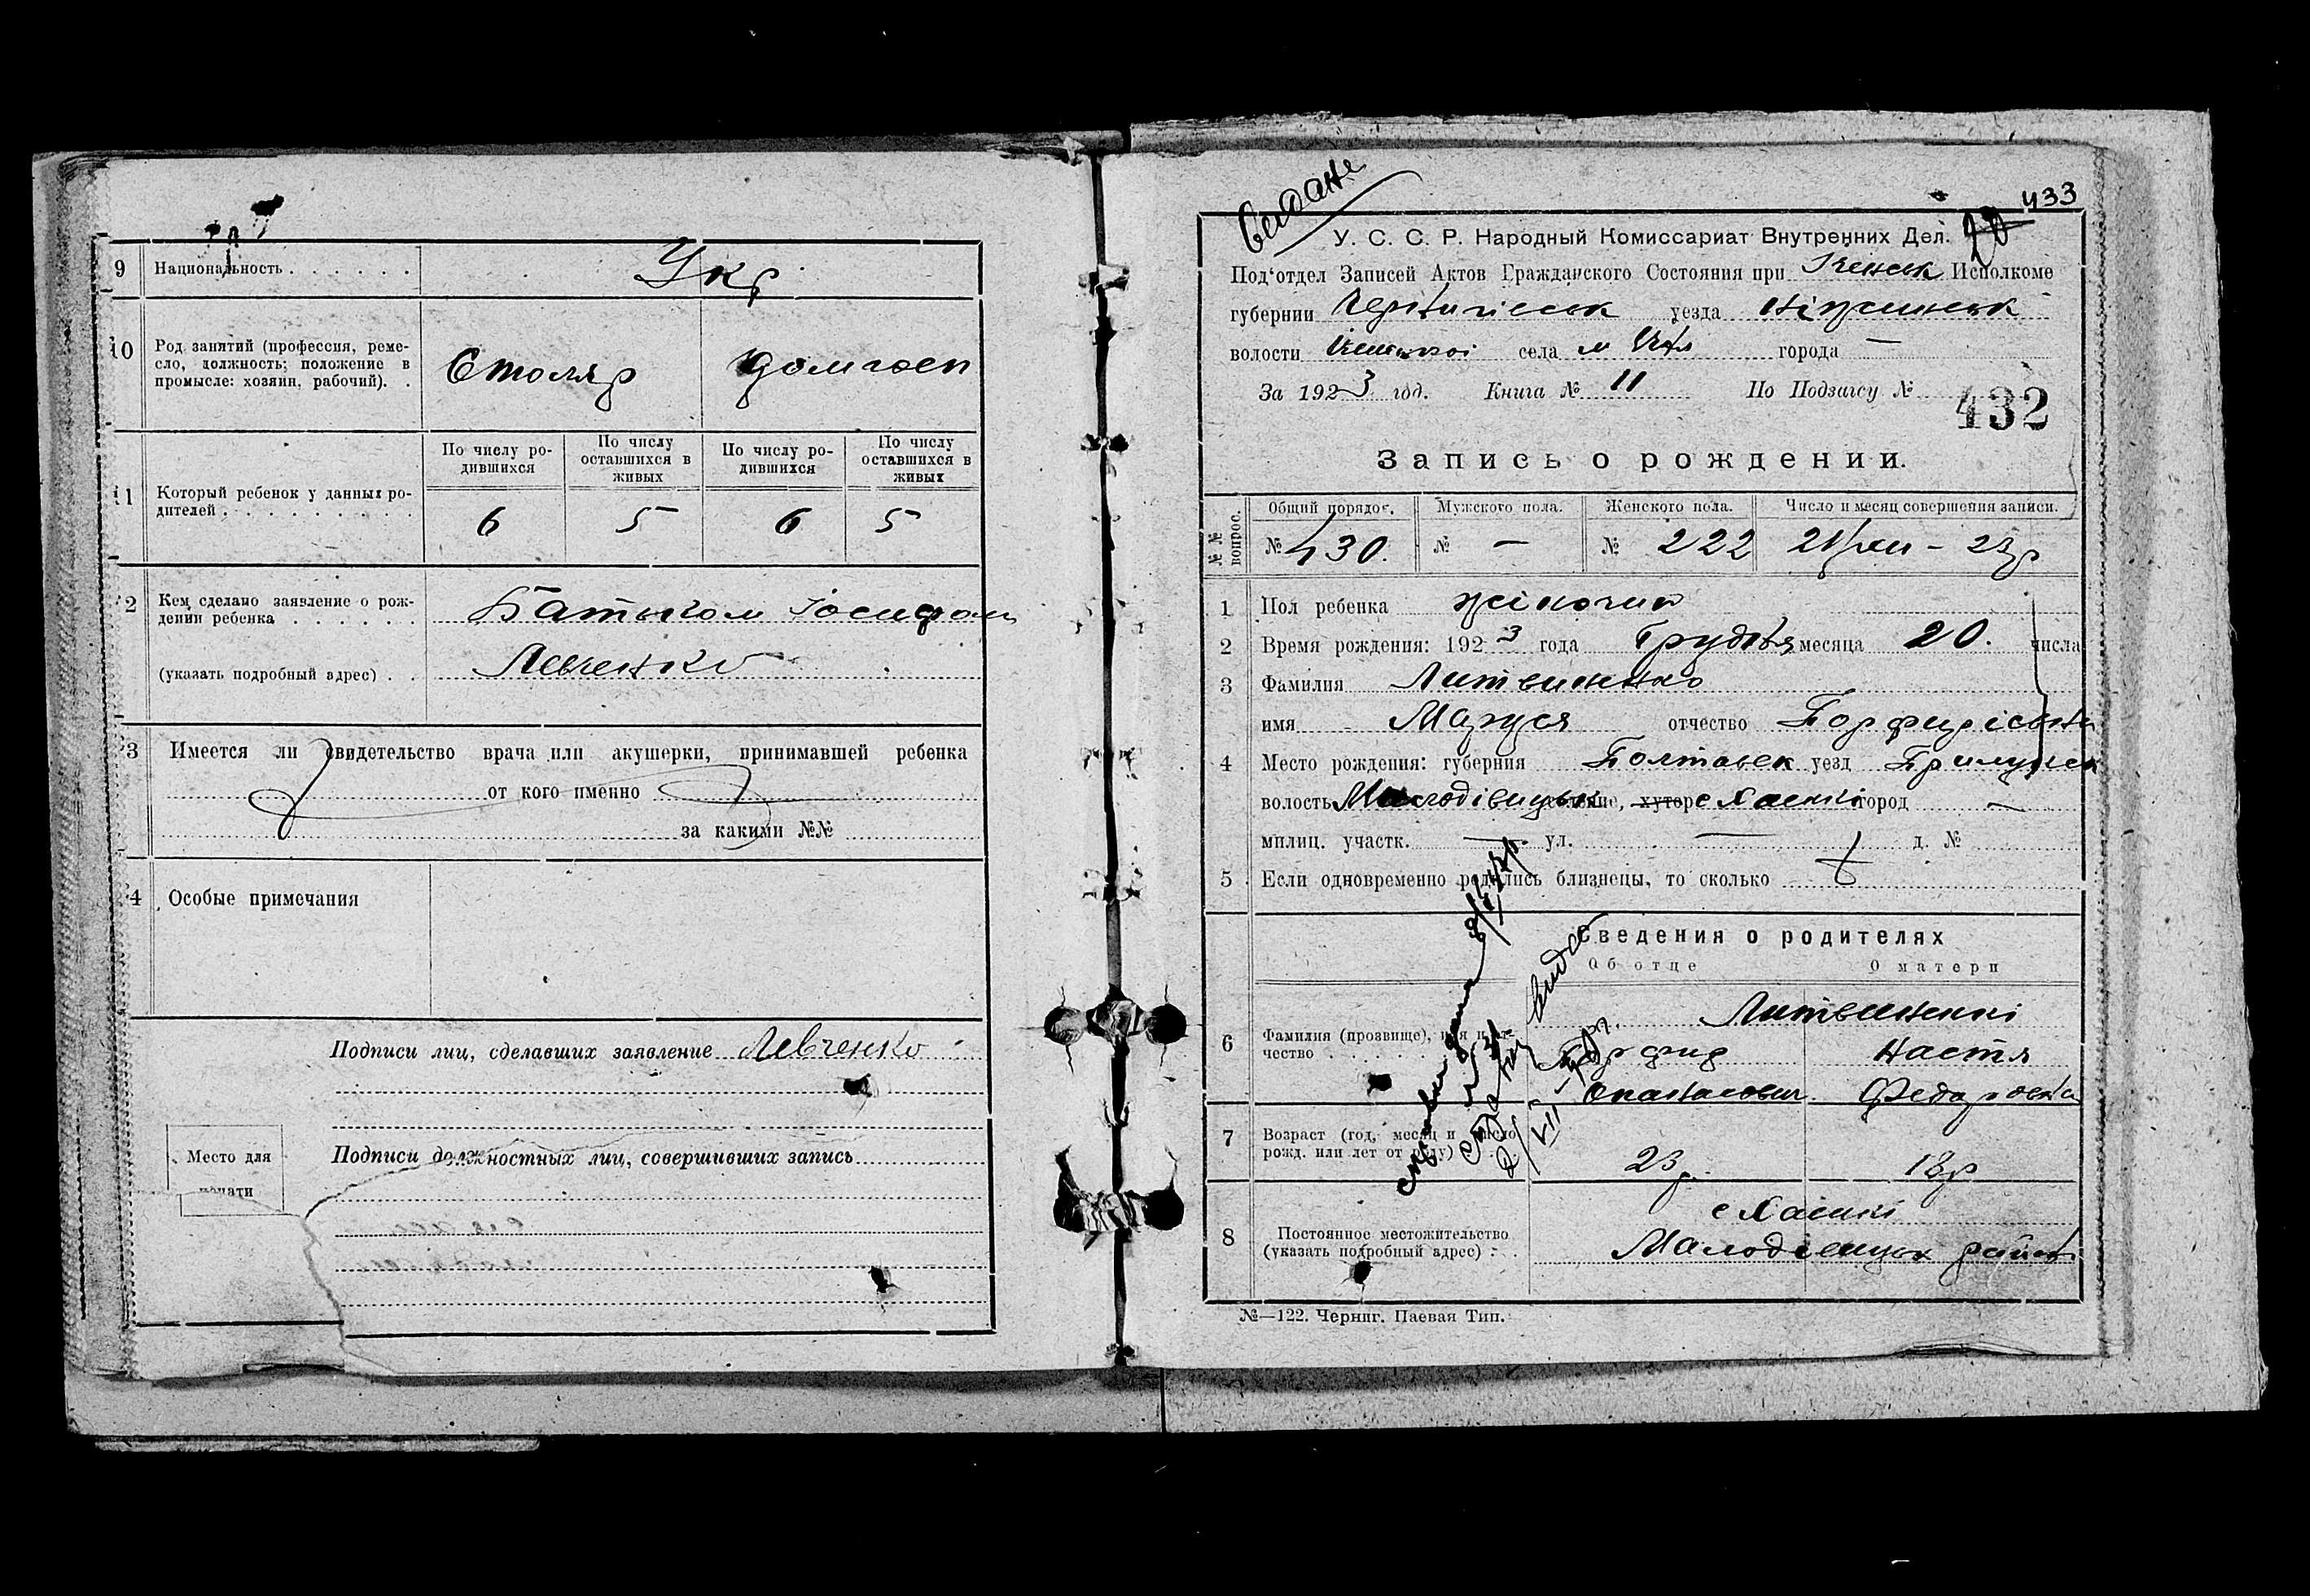 9 Национальность . . . . . . Укр
10 Род занятий (профессия, реме-
сло, должность; положение в
промысле: хозяин, рабочий). .
Столяр домгосп
По числу ро-
дившихся
По числу
оставшихся в
живых
По числу ро-
дившихся
По числу
оставшихся в
живых
11 Который ребенок у данных ро-
дителей . . . . . . . . . .
6 5 6 5
12 Кем сделано заявление о рож-
дении ребенка . . . . . .
(указать подробный адрес) . .
Батьком Іосифом
Левченко
13 Имеется ли свидетельство врача или акушерки, принимавшей ребенка
от кого именно
за какими №№
14 Особые примечания
Подписи лиц, сделавших заявление Левченко
Подписи должностных лиц, совершивших запись
Место для
печати
видане
433
20
У. С. С. Р. Народный Комиссариат Внутренних Дел.
Под'отдел Записей Актов Гражданского Состояния при Ічнськ Исполкоме
губернии Чернигівськ уезда Ніжинськ
волости села м города —
За 1923 год. Книга № 11 По Подзагсу №
432
Запись о рождении.
№№ вопрос.
Общий порядок. Мужского пола. Женского пола. Число и месяц совершения записи.
№ 430. № — № 222
1 Пол ребенка жіночий
2 Время рождения: 1923 года Грудня месяца 20. числа
3 Фамилия Литвиненко
имя Маруся отчество Порфирівна
4 Место рождения: губерния Полтавск уезд Прилуцьк
волость Малодівицьк селение, хутор с Хаенки город —
милиц. участк. — ул. — д. №
5 Если одновременно родились близнецы, то сколько
Сведения о родителях
Об отце О матери
6 Фамилия (прозвище), имя и от-
чество . . . . . .
Литвиненкі
Порфир Настя
Опанасович Федоровна
7 Возраст (год, месяц и число
рожд. или лет от роду)
23 р. 18 р
8 Постоянное местожительство
(указать подробный адрес) . .
с Хаенкі
Малодівицьк район
№—122. Черниг. Паевая Тип.